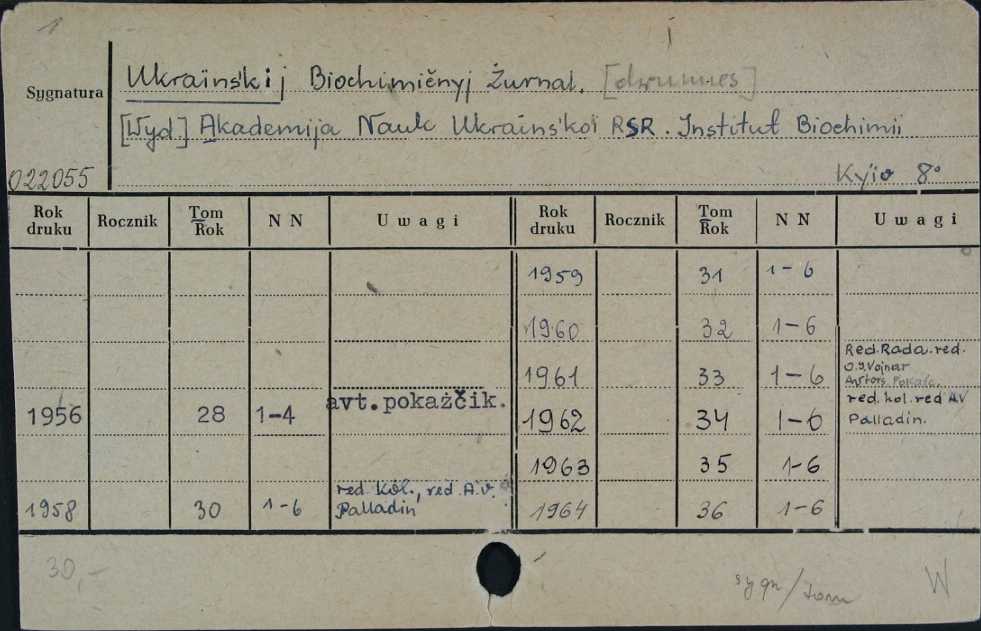 1
Sygnatura
Ukraïns'kij Biochimičnyj Žurnal.
[Wyd] Akademija Nauk Ukraïns'koï RSR. Institut Biochimii
022055
Kyïv 8°
Rok druku Rocznik Tom Rok N N Uwagi Rok druku Rocznik Tom Rok N N Uwagi
1959 31 1-6
1960 32 1-6
1961 33 1-6 Red. Rada. red.
O.S. Vojnar
1956 28 1-4 avt.pokażčik. 1962 34 1-6 red. kol. red AV
Palladin.
1963 35 1-6
1958 30 1-6 red. Kol., red. A.V. 1964 36 1-6
Palladin
30,-
sygn/tom
W